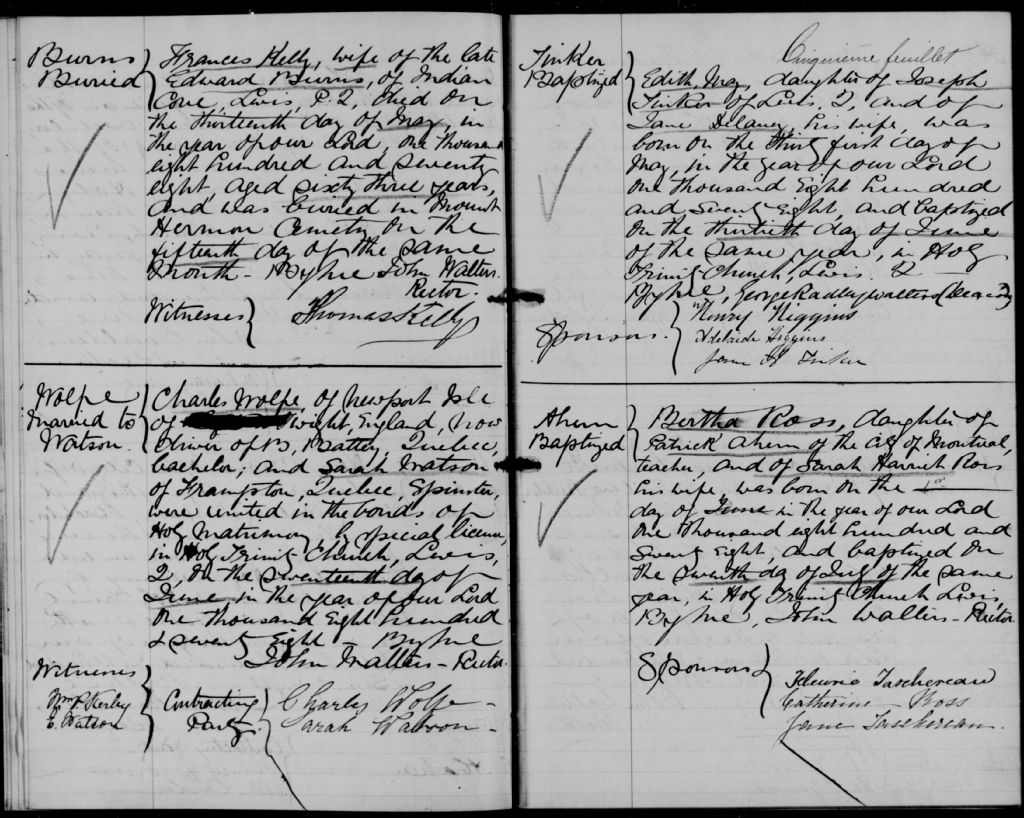 Burns
Buried
Frances Kelly, wife of the late
Edward Burns, of Indian
Cove, Levis, P.Q., died on
the thirteenth day of May, in
the year of our Lord, one thousand
eight hundred and seventy
eight, aged sixty three years,
and was buried in Mount
Hermon Cemetry on the
fifteenth day of the same
month - By me John Walters.
Rector.
Witnesses
Thomas Kelly
Wolfe
Married to
Watson.
Charles Wolfe, of Newport Isle
of Wight, England, now
driver of B. Battery, Quebec,
bachelor; and Sarah Watson
of Frampton, Quebec, Spinster,
were united in the bonds of
Holy Matrimony by special license,
in Holy Trinity Church, Levis,
Q, on the seventeenth day of
June in the year of our Lord
One thousand Eight hundred
& seventy Eight - By me
John Walters - Rector.
Witnesses
Wm Kerby
E. Watson
Contracting
Party.
Charles Wolfe -
Sarah Watson -
Cinquième feuillet
Tinker
Baptized
Edith May, daughter of Joseph
Tinker of Levis, Q, and of
Jane Delaney his wife, was
born on the thirty first day of
May, in the year of our Lord
One thousand Eight hundred
and Seventy Eight, and baptized
on the thirtieth day of June
of the same year, in Holy
Trinity Church, Levis Q -
By me, George Radley Walters (Deacon)
Sponsors.
Henry Higgins
Adelaide Higgins
Jane Tinker
Ahern
Baptized
Bertha Ross, daughter of
Patrick Ahern of the City of Montreal,
teacher, and of Sarah Harriet Ross
his wife, was born on the 1st
day of June in the year of our Lord
One thousand eight hundred and
Seventy Eight, and baptized on
the seventh day of July of the same
year, in Holy Trinity Church Levis,
By me, John Walters - Rector
Sponsors
Taschereau
Catherine Ross
Jane Taschereau.